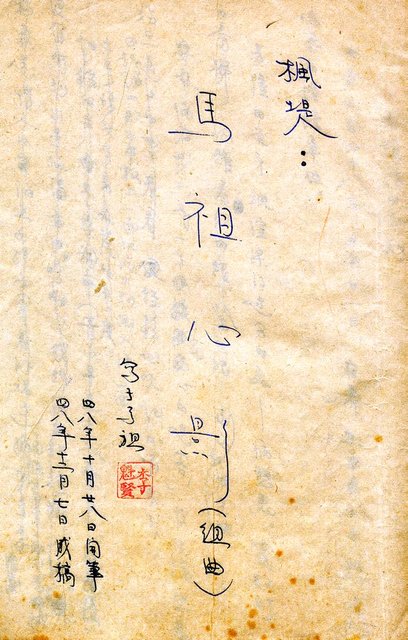 楓堤：
馬祖心影（組曲）
寫于馬祖
李魁賢
四八年十月廿八日開筆
四八年十二月七日成稿